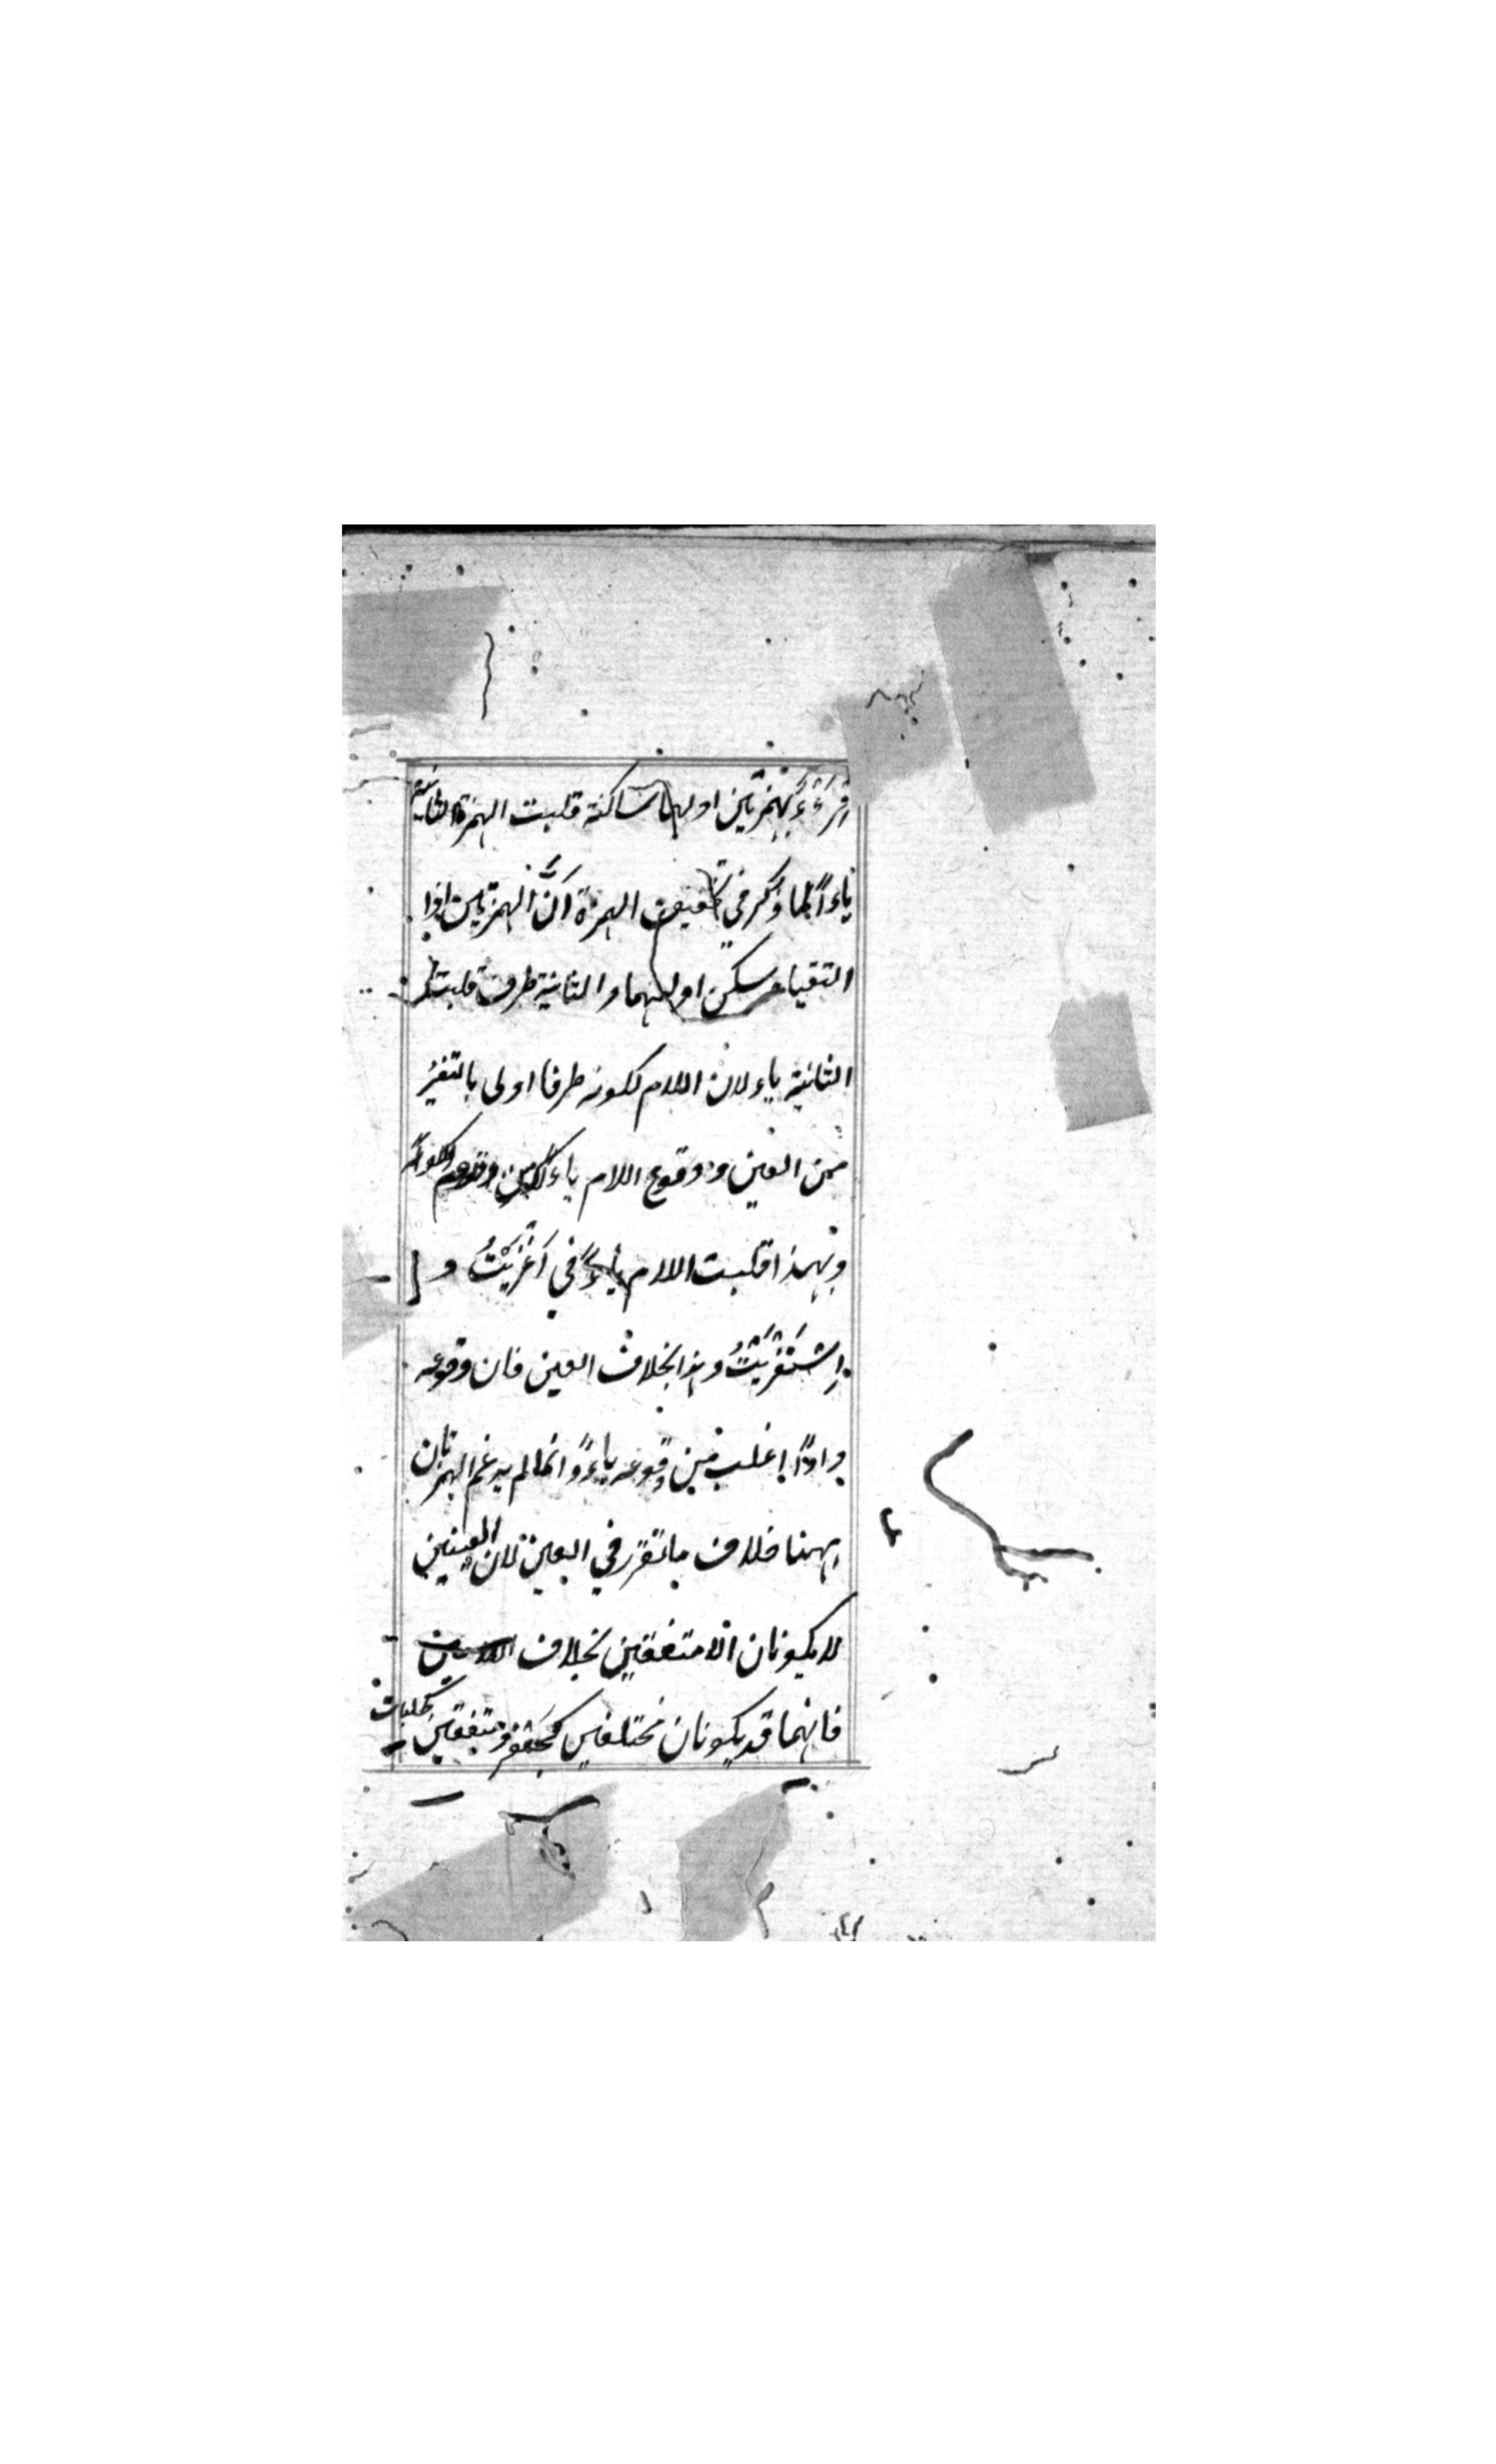 اقرءء بهمزتين اولهما ساكنة قلبت الهمزة الثانية
ياءً لما ذكر في تخفيف الهمزة أنَّ الهمزتين اذا
التقيا وسكن اولهما والثانية طرف قلبت
الثانية ياء لان اللام لكونه طرفا اولى بالتغير
من العين ووقوع اللام ياءً اكثر من وقوعه
وبهذا قلبت اللام ياءً في أَغْزَيْتُ و
اِسْتَغْزَيْتُ وهذا بخلاف العين فان وقوعه
واوًا اغلب من وقوعه ياءً وانما لم يدغم الهمزتان
ههنا خلاف ما تقرر في العين لان العينين
لا يكونان الا متفقين بخلاف اللامين
فانهما قد يكونان مختلفين كجعفر ومتفقين كجلباب